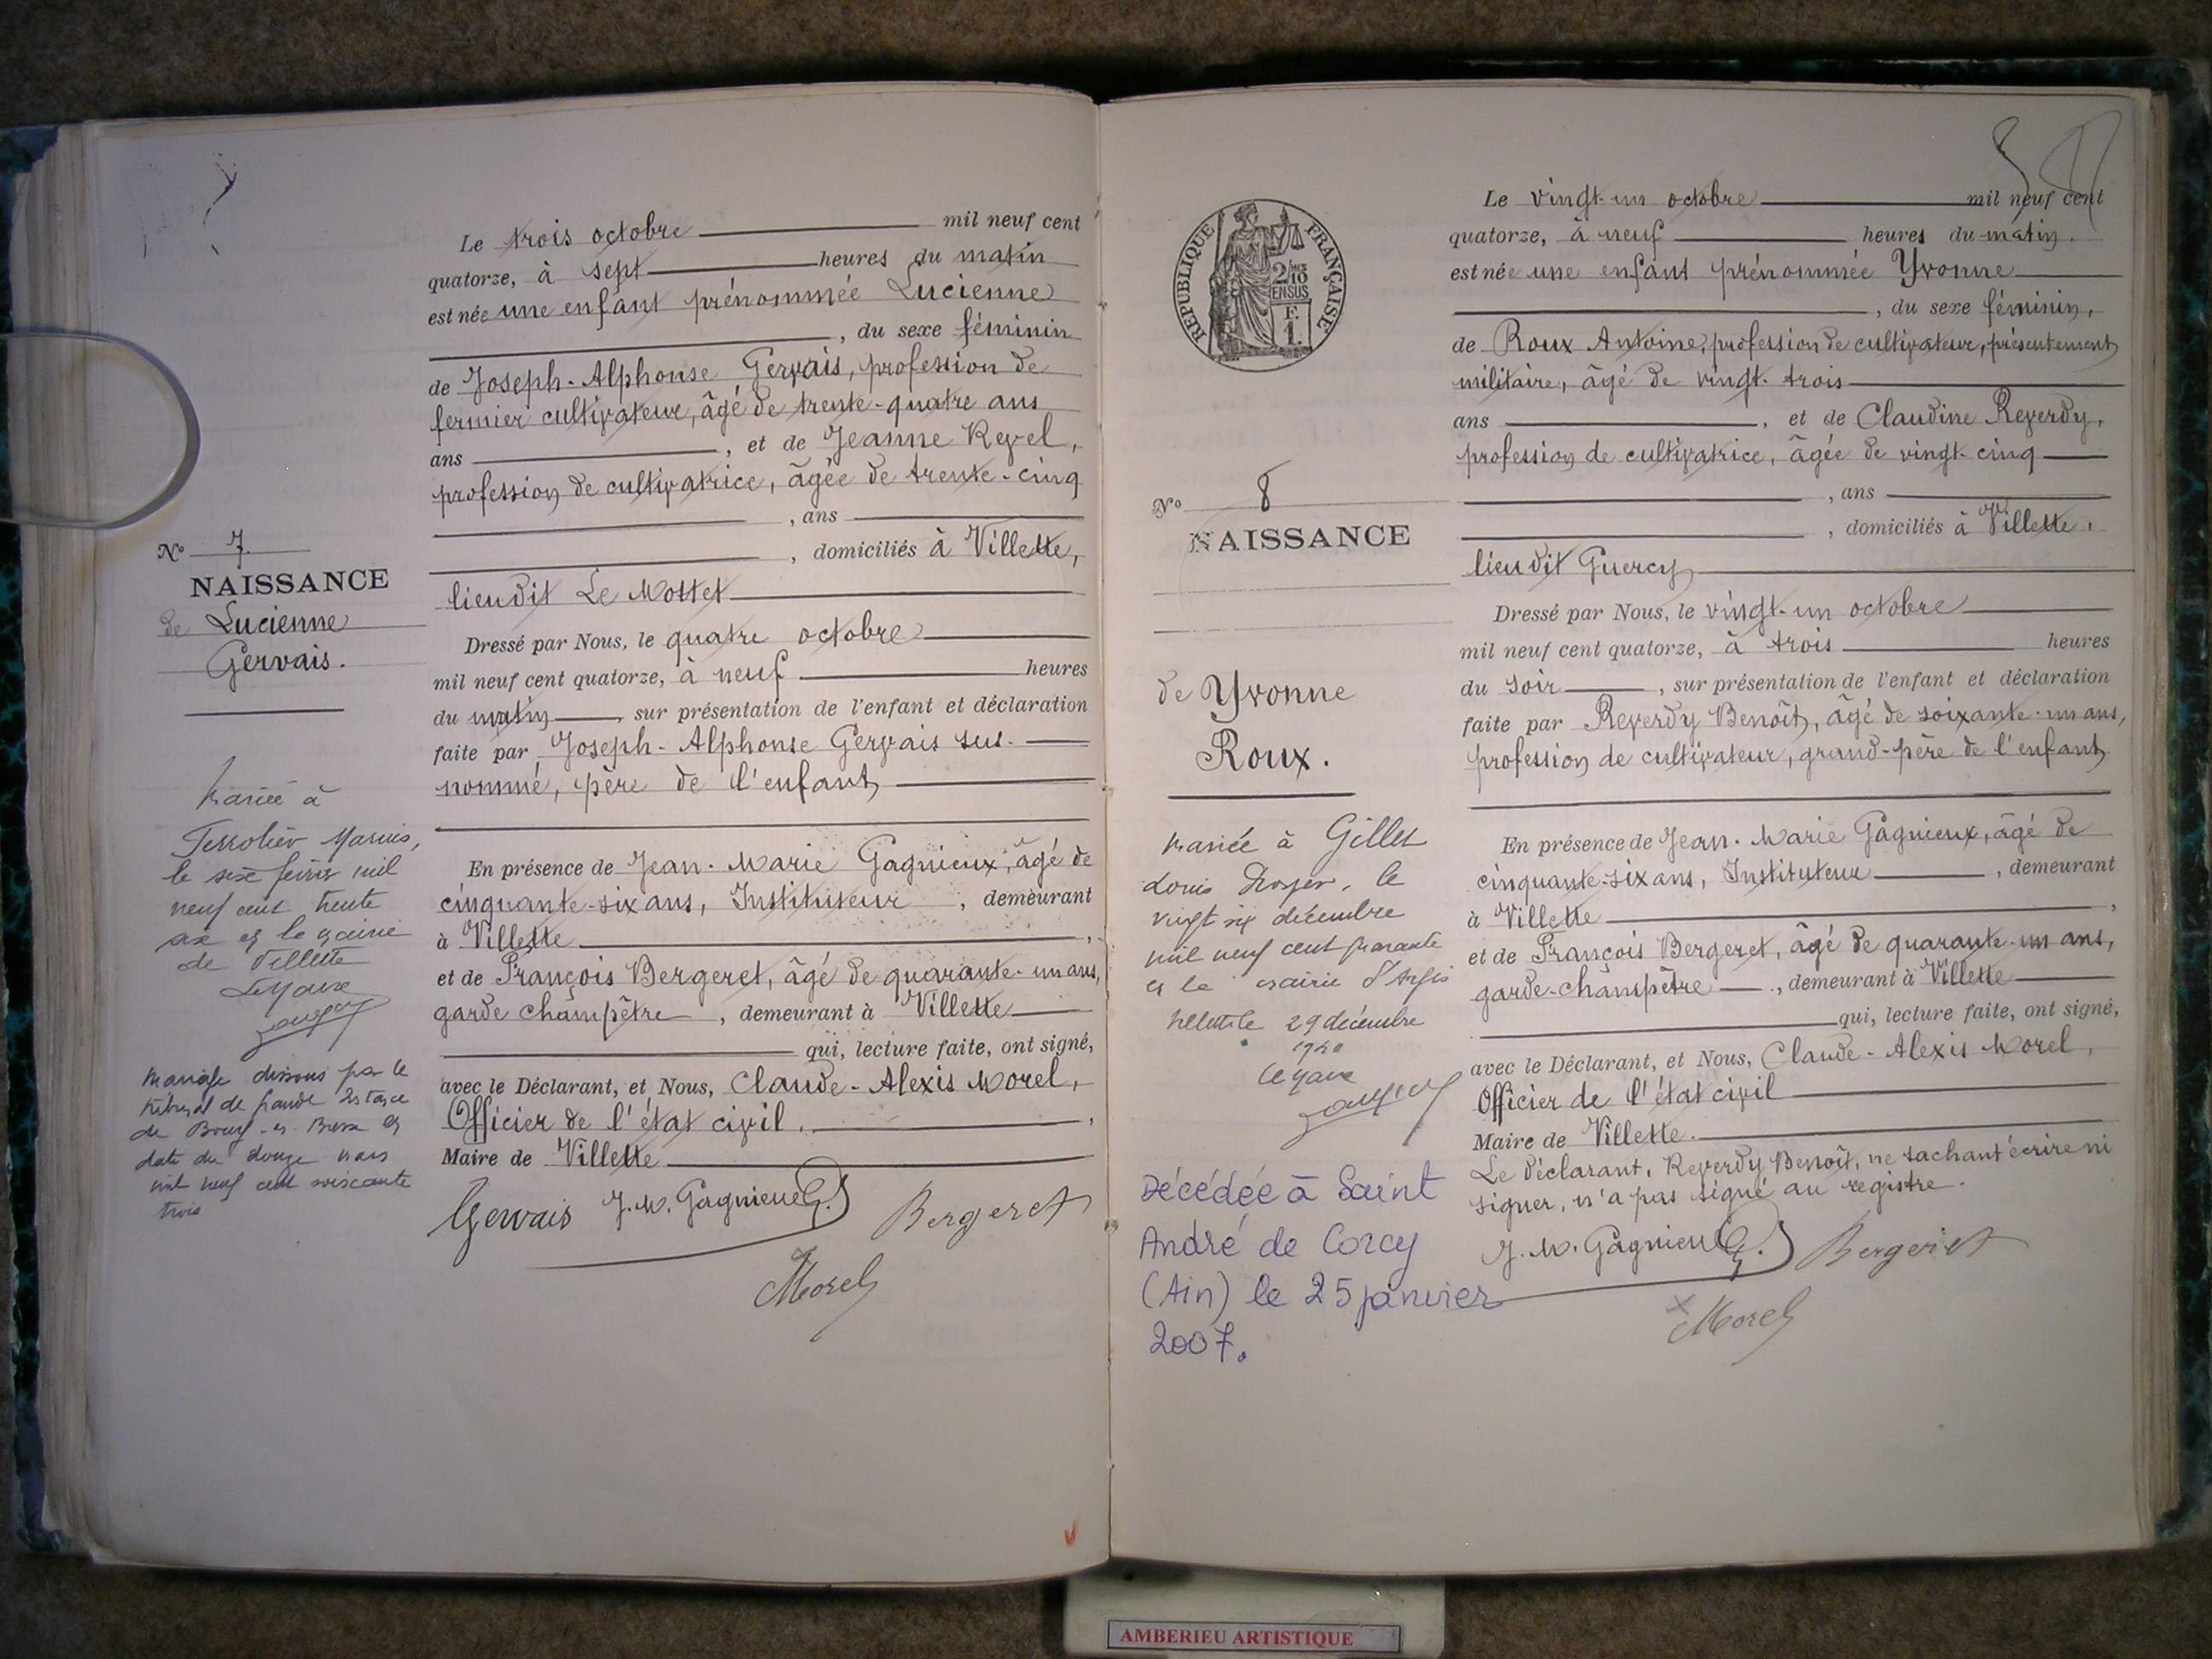 Le trois octobre mil neuf cent
quatorze, à sept heures du matin
est née une enfant prénommée Lucienne
, du sexe féminin
de Joseph-Alphonse Gervais, profession de
fermier cultivateur, âgé de trente-quatre ans
ans , et de Jeanne Revel,
profession de cultivatrice, âgée de trente-cinq
, ans
, domiciliés à Villette,
lieu dit Le Mottet
No 7.
NAISSANCE
de Lucienne
Gervais.
Dressé par Nous, le quatre octobre
mil neuf cent quatorze, à neuf heures
du matin , sur présentation de l'enfant et déclaration
faite par Joseph-Alphonse Gervais sus-
nommé, père de l'enfant
En présence de Jean-Marie Gagnieux, âgé de
cinquante-six ans, Instituteur , demeurant
à Villette ,
et de François Bergeret, âgé de quarante-un ans,
garde champêtre , demeurant à Villette
qui, lecture faite, ont signé,
avec le Déclarant, et Nous, Claude-Alexis Morel,
Officier de l'état civil. ,
Maire de Villette
Gervais J. M. Gagnieux Bergeret
Morel
Mariée à
Marius,
le six février mil
neuf cent trente
six en la mairie
de Villette
Le Maire
Mariage dissous par le
tribunal de grande Instance
de Bourg-en-Bresse en
date du douze mars
mil neuf cent soixante
trois
RÉPUBLIQUE FRANÇAISE
2/10
EN SUS
F.
1.
Le vingt-un octobre mil neuf cent
quatorze, à neuf heures du matin.
est née une enfant prénommée Yvonne
, du sexe féminin,
de Roux Antoine, profession de cultivateur, présentement
militaire, âgé de vingt-trois
ans , et de Claudine Reverdy,
profession de cultivatrice, âgée de vingt-cinq
, ans
, domiciliés à Villette,
lieu dit Guercy
No 8
NAISSANCE
de Yvonne
Roux.
Dressé par Nous, le vingt-un octobre
mil neuf cent quatorze, à trois heures
du soir , sur présentation de l'enfant et déclaration
faite par Reverdy Benoît, âgé de soixante-un ans,
profession de cultivateur, grand-père de l'enfant
En présence de Jean-Marie Gagnieux, âgé de
cinquante-six ans, Instituteur , demeurant
à Villette ,
et de François Bergeret, âgé de quarante-un ans,
garde-champêtre , demeurant à Villette
qui, lecture faite, ont signé,
avec le Déclarant, et Nous, Claude-Alexis Morel,
Officier de l'état civil
Maire de Villette.
Le déclarant, Reverdy Benoît, ne sachant écrire ni
signer, n'a pas signé au registre.
J. M. Gagnieux Bergeret
Morel
Mariée à Gillet
Louis le
vingt six décembre
mil neuf cent quarante
en la mairie d'Argis
Villette 29 décembre
1940
Le Maire
Décédée à Saint
André de Corcy
(Ain) le 25 janvier
2007.
AMBERIEU ARTISTIQUE